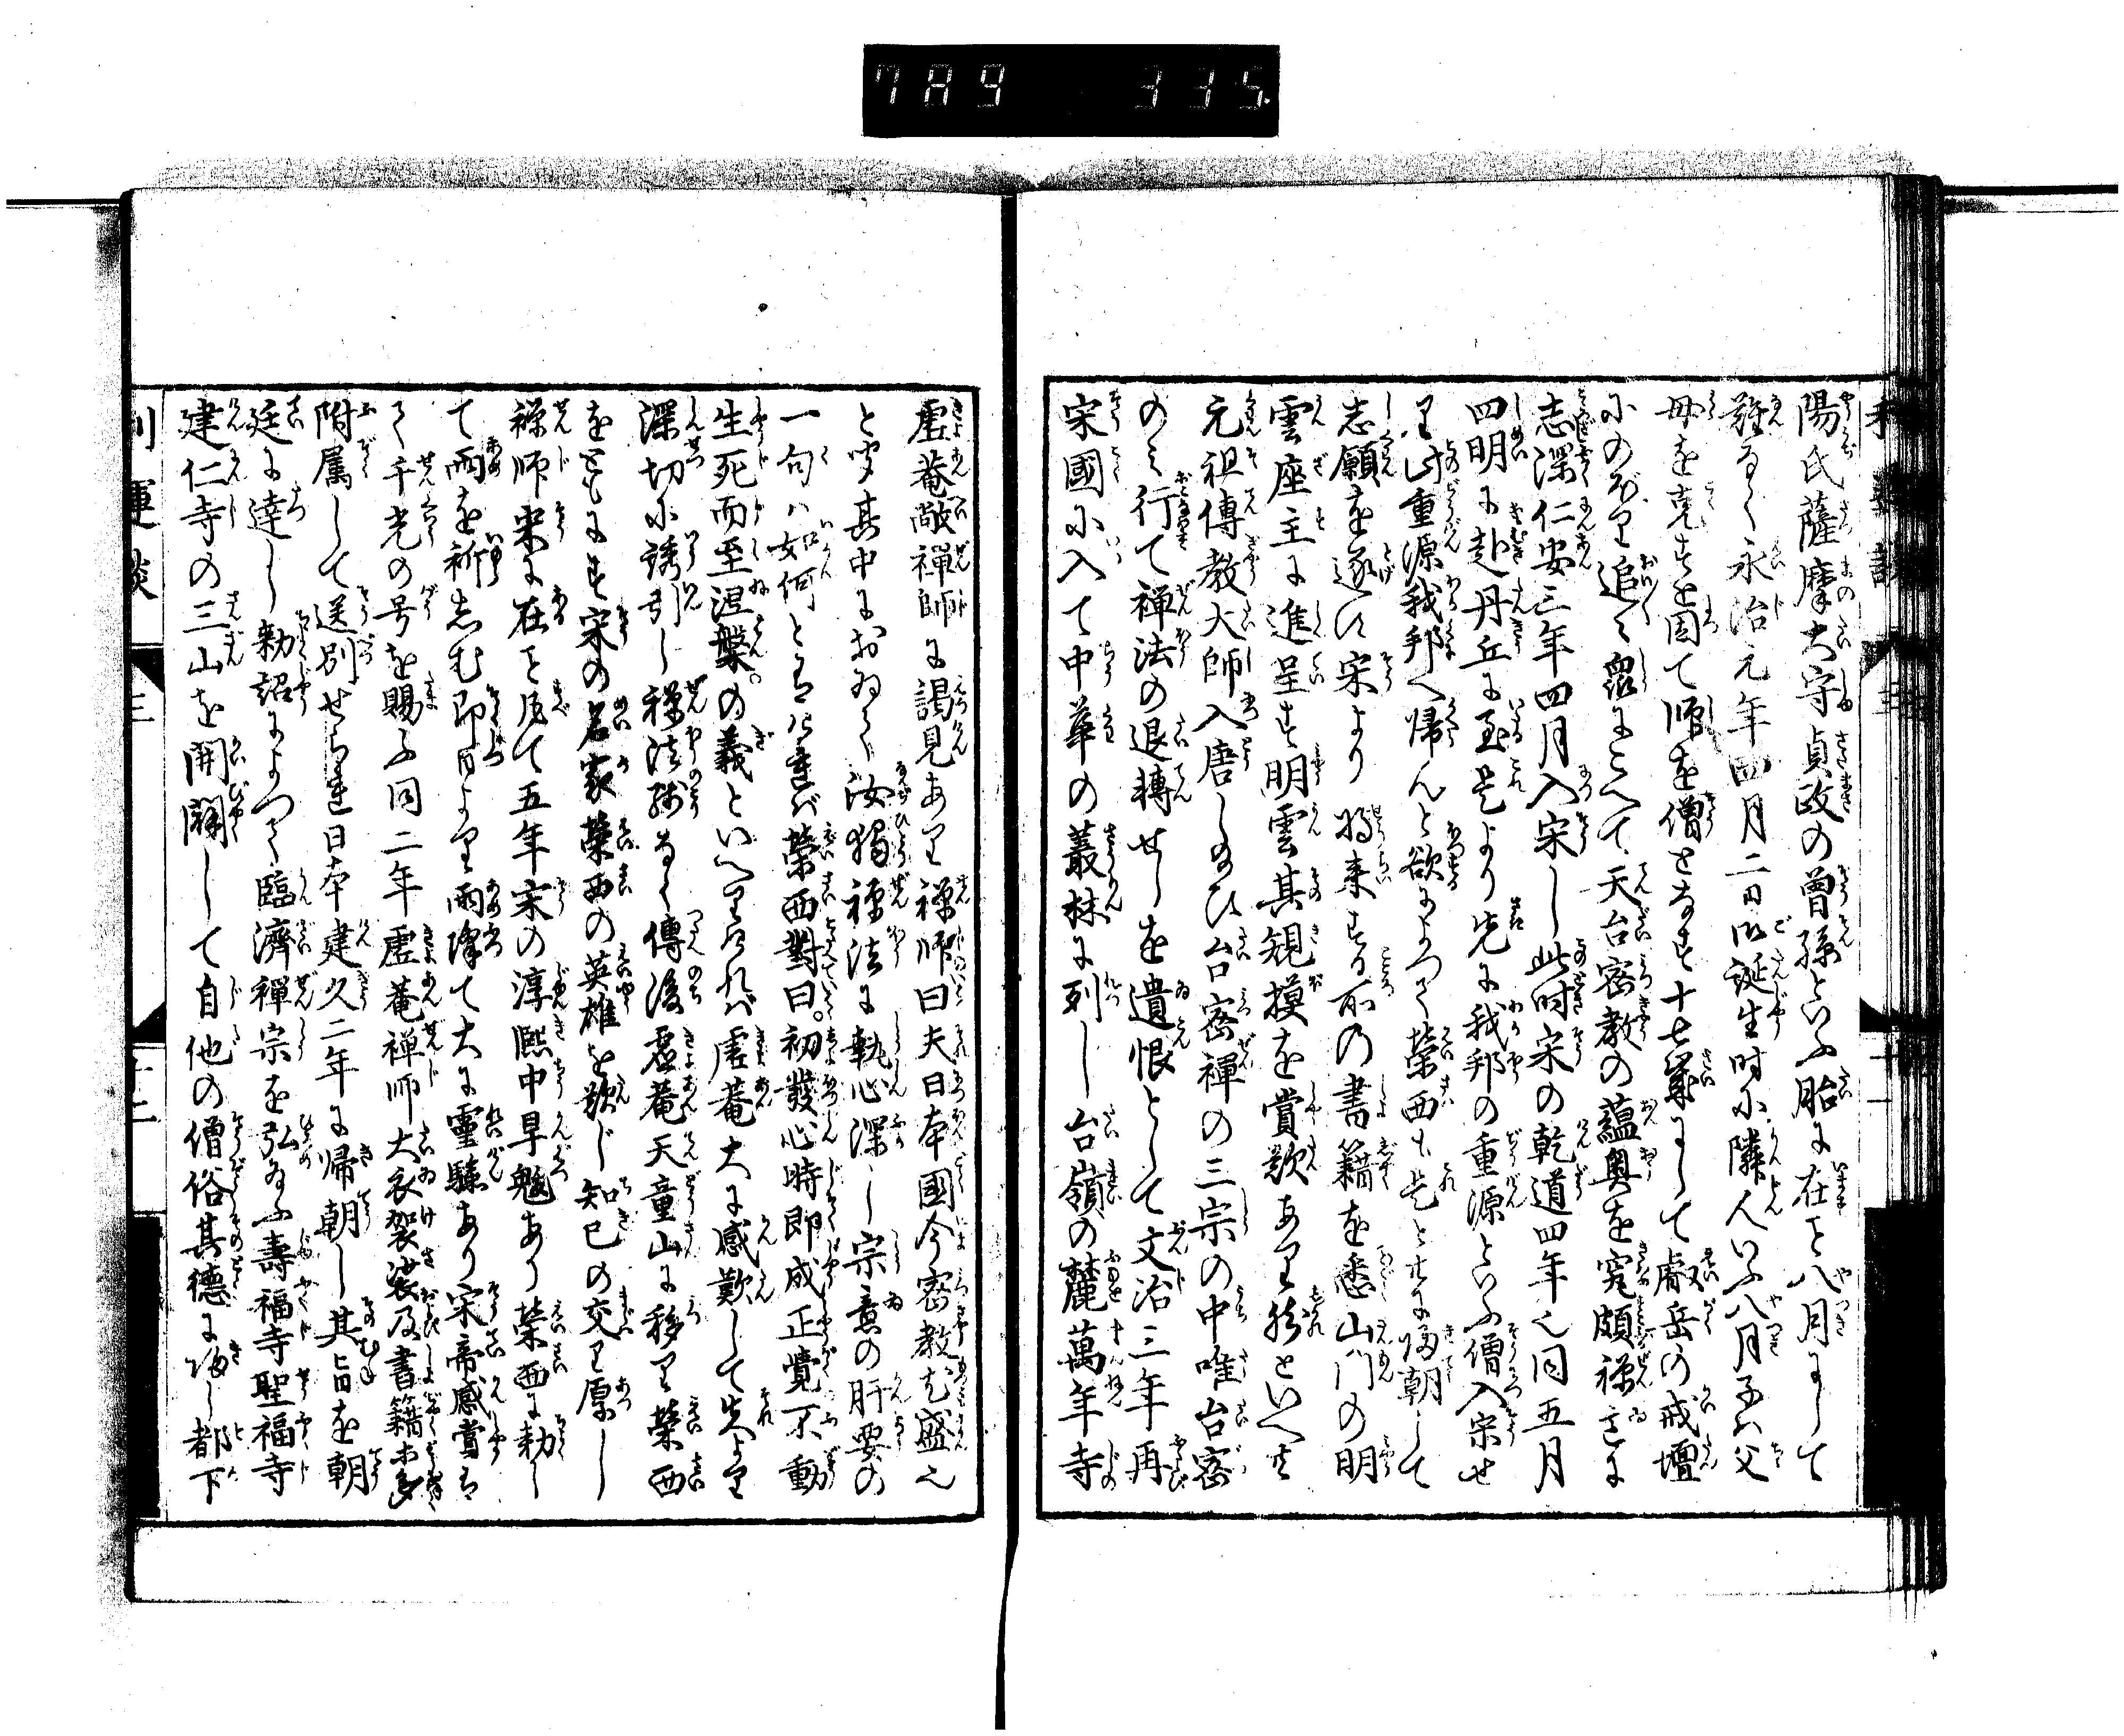 789 335
陽氏薩摩大守貞政の曽孫といふ胎に在こと八月にして
難なく永治元年四月二日御誕生時に隣人いふ八月子は父
母を尅すと因て師を僧となす十七歳にして叡岳の戒壇
にのぼり追々衆にこへて天台密教の蘊奥を究頗禅意に
志深仁安三年四月入宋し此時宋の乾道四年也同五月
四明に赴丹丘に至是より先に我邦の重源といふ僧入宋せ
り此重源我邦へ帰んと欲によつて榮西も是とともに帰朝して
志願を遂ず宋より将来する所の書籍を悉山門の明
雲座主に進呈す明雲其規摸を賞歎あり然といへども
元祖傳教大師入唐し給ひ台密禪の三宗の中唯台密
のミ行て禅法の退轉せしを遺恨として文治三年再
宋國に入て中華の叢林に列し台嶺の麓萬年寺
虚菴敞禪師に謁見あり禅師曰夫日本國今密教尤盛也
と聞其中におゐて汝獨禅法に執心深し宗意の肝要の
一句ハ如何とありければ榮西對曰。初發心時即成正覺不動
生死而至涅槃。の義といへりければ虚菴大に感歎して夫より
深切に誘引し禅法残なく傳後虚菴天童山に移り榮西
をともにす宋の名家榮西の英雄を歎じ知己の交り厚し
禅師宋に在こと凡て五年宋の淳熙中旱魃あり榮西に勅し
て雨を祈しむ即日より雨降て大に靈驗あり宋帝感賞は
して千光の号を賜ふ同二年虚菴禅師大衣袈裟及書籍末多
附属して送別せられ日本建久二年に帰朝し其旨を朝
廷に達し勅詔によつて臨濟禪宗を弘給ふ壽福寺聖福寺
建仁寺の三山を開闢して自他の僧俗其徳に帰し都下